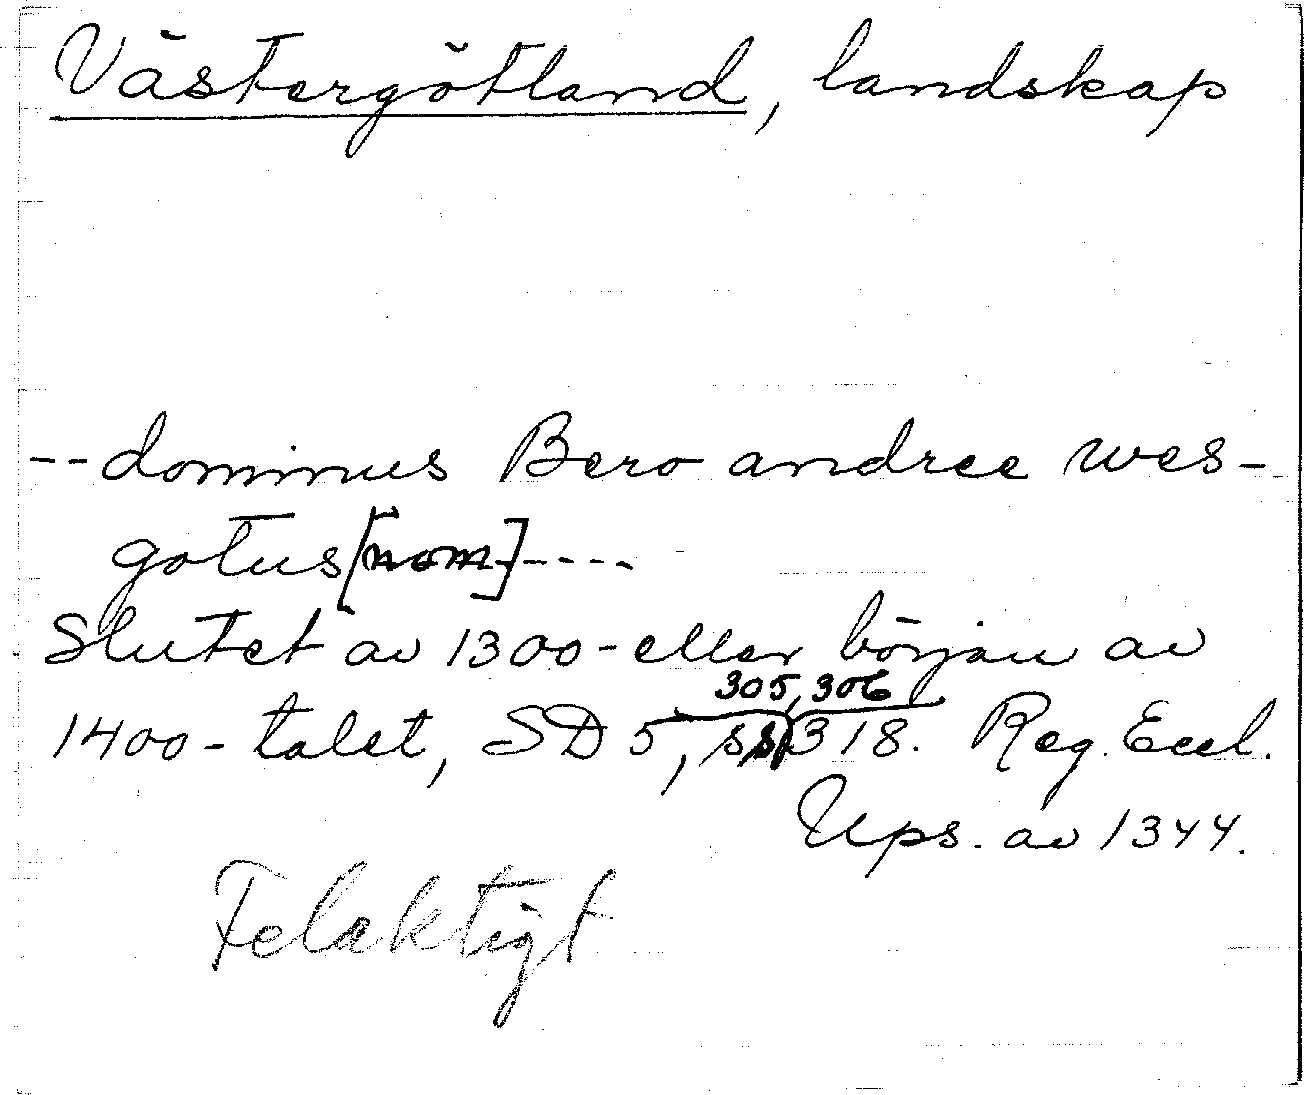 Västergötland, landskap
--dominus Bero andree wes-
gotus [nom]----
Slutet av 1300- eller början av
305, 306
1400-talet, SD 5, s 318. Reg. Eccl.
Ups. av 1344.
Felaktigt